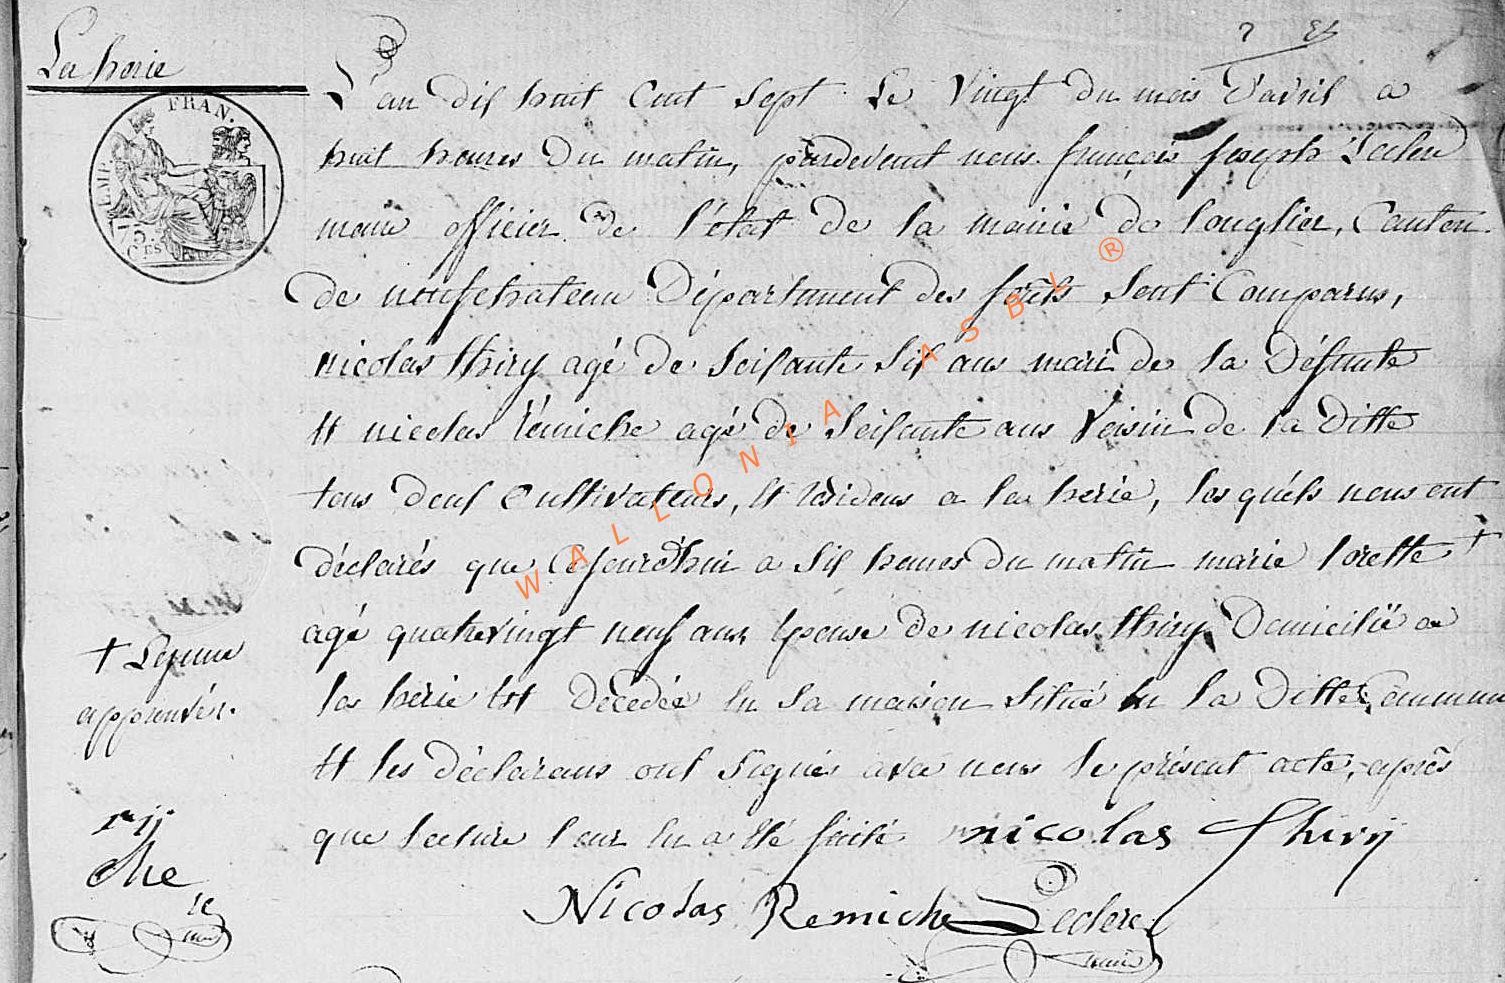 La herie
L'an dix huit Cent Sept Le Vingt du mois d'avril a
huit heures Du matin, pardevent nous françois Joseph Leclere
maire officier De l'état de la mairie de longlier, Canton
de neufchateau Département des forêts Sont Comparus,
nicolas thiry agé de Soixante Six ans mari de la Défunte
Et nicolas rémiche agé de Soixante ans Voisin de la Ditte
tous deux Cultivateurs, Et résidens a la herie, les quéls nous ont
déclarés que Cejourd'hui a Six heures du matin marie lorette +
agé quatrevingt neuf ans Epouse de nicolas thiry Domicilié a
la herie Est Décédée En Sa maison Situé En la Ditte Commune
Et les Déclarans ont Signés avec nous le présent acte, après
que lecture leur En a Eté faite nicolas thirÿ
Nicolas Remiche Leclere
maire
+ Lejeune
approuvér.
che
FRAN.
EMP.
75
C.ES
WALLONIA ASBL ®